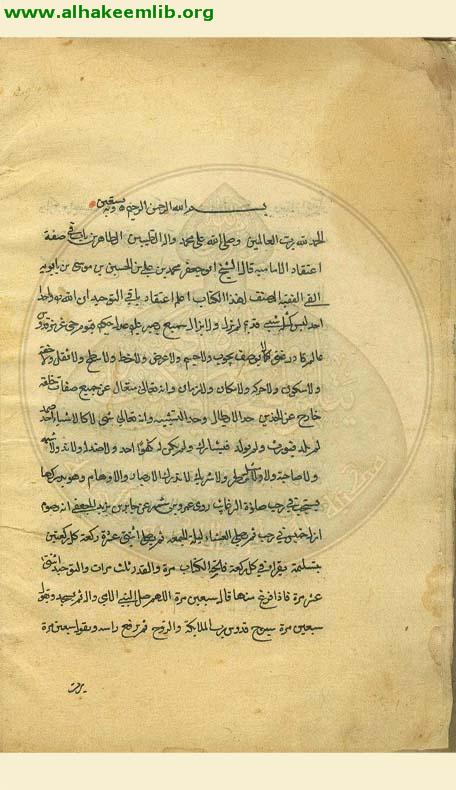 www.alhakeemlib.org
بسم الله الرحمن الرحيم وبه نستعين
الحمد لله رب العالمين وصلى الله على محمد واله الطيبين الطاهرين باب في صفة
اعتقاد الامامية قال الشيخ ابو جعفر محمد بن علي بن الحسين بن موسى بن بابويه
القمي الفقيه المصنف لهذا الكتاب اعلم ان اعتقادنا في التوحيد ان الله تعالى واحد
احد ليس كمثله شيء قديم لم يزل ولا يزال سميع بصير عليم حكيم حي قيوم عزيز قدوس
عالم قادر غني لا يوصف بجوهر ولا جسم ولا عرض ولا خط ولا سطح ولا ثقل ولا خفة
ولا سكون ولا حركة ولا مكان ولا زمان وانه تعالى متعال عن جميع صفات خلقه
خارج عن الحدين حد الابطال وحد التشبيه وانه تعالى شيء لا كالاشياء احد صمد
لم يلد فيورث ولم يولد فيشارك ولم يكن له كفوا احد ولا ضد ولا ند ولا شبه
ولا صاحبة ولا مثل ولا نظير ولا شريك لا تدركه الابصار والاوهام وهو يدركها
يستحب في رجب صلاة الرغائب روى عمرو بن شمر عن جابر بن يزيد الجعفي انه صوم
اول خميس في رجب ثم يصلي العشاء ليلة الجمعة ثم يصلي اثنتي عشرة ركعة كل ركعتين
بتسليمة يقرا في كل ركعة فاتحة الكتاب مرة والقدر ثلث مرات والتوحيد اثنتي
عشرة مرة فاذا فرغ منها قال سبعين مرة اللهم صل النبي الامي واله ثم يسجد ويقول
سبعين مرة سبوح قدوس رب الملايكة والروح ثم يرفع راسه ويقول سبعين مرة